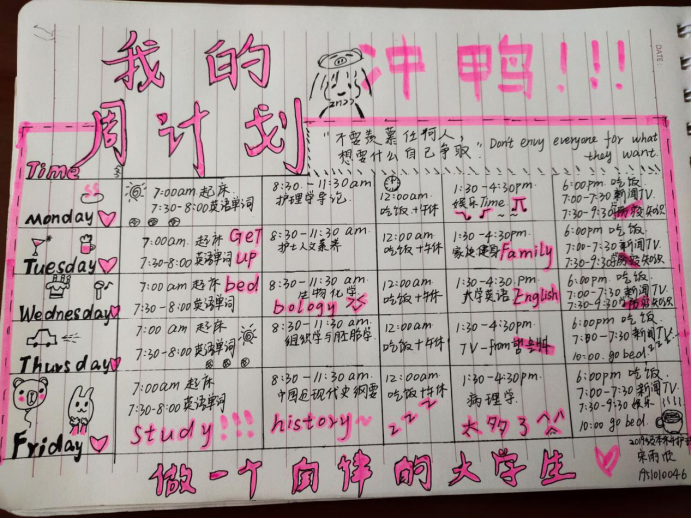 我的
周计划
冲鸭!!!
DATE:
"不要羡慕任何人,
想要什么自己争取."
Don't envy everyone for what
they want.
Time
Monday
7:00am 起床.
7:30-8:00英语单词
8:30-11:30 am.
护理学导论.
12:00am.
吃饭+午休
1:30-4:30pm
娱乐Time
6:00pm 吃饭.
7:00-7:30新闻TV
7:30-9:30 知识
Tuesday
7:00am. 起床
7:30-8:00 英语单词
Get
up
8:30-11:30 am.
护士人文素养
12:00am
吃饭+午休
1:30-4:30pm.
Family
6:00pm 吃饭.
7:00-7:30新闻TV.
7:30-9:30 知识
Wednesday
7:00am 起床
7:30-8:00英语单词
bed
8:30-11:30 am
生物化学
bology
12:00am
吃饭+午休
1:30-4:30pm.
大学英语
English
6:00pm 吃饭.
7:00-7:30新闻TV.
7:30-9:30 知识
Thursday
7:00 am 起床
7:30-8:00英语单词
8:30-11:30 am.
组织学与胚胎学.
12:00am
吃饭+午休
1:30-4:30pm
TV-from
6:00pm 吃饭
7:00-7:30新闻TV
10:00. go bed.
Friday
7:00am 起床
7:30-8:00英语单词
Study!!!
8:30-11:30 am.
中国近现代史纲要
history~
12:00am
吃饭+午休
zzz
1:30-4:30pm.
病理学.
太多了
6:00pm 吃饭
7:00-7:30新闻TV
7:30-9:30 娱乐!!!
10:00 go bed.
做一个自律的大学生